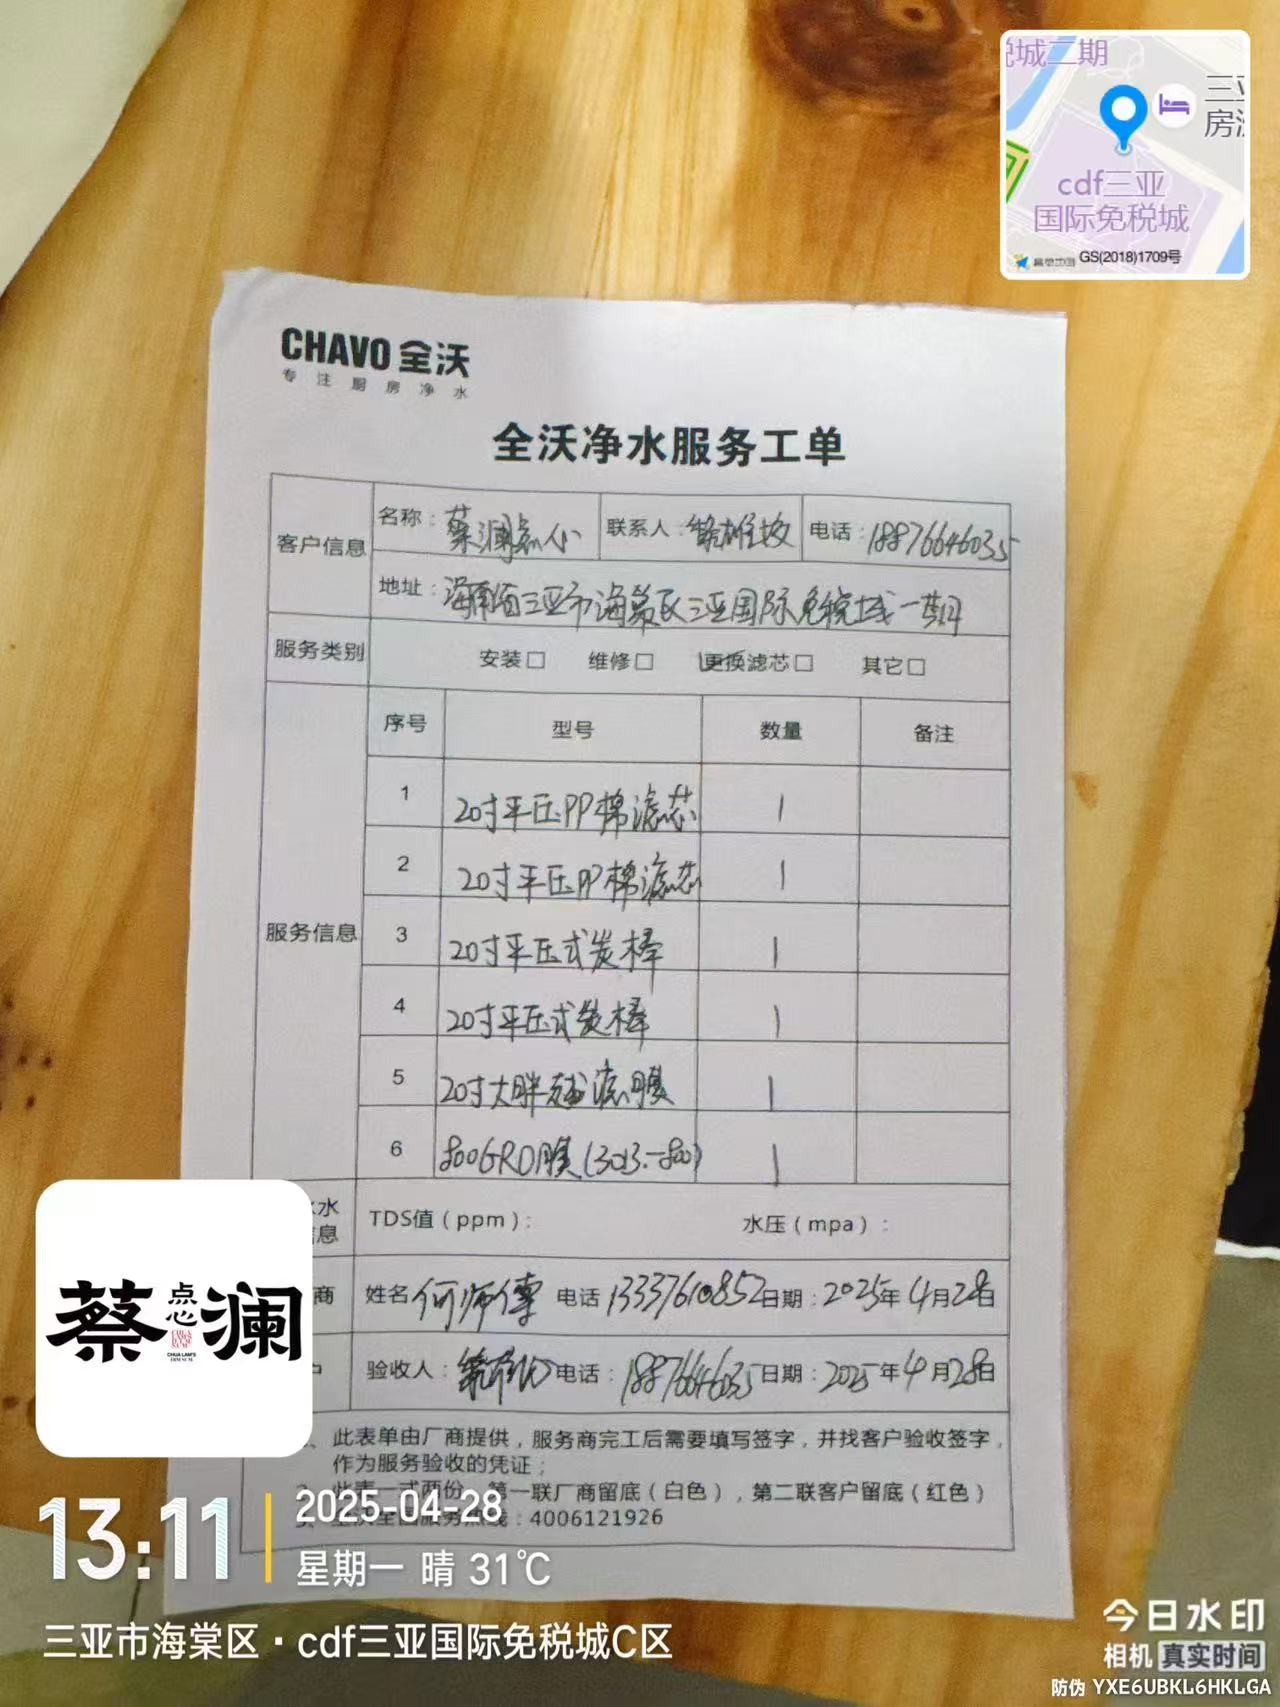 税城二期
三亚
cdf三亚
国际免税城
GS(2018)1709号
CHAVO 全沃
专注厨房净水
全沃净水服务工单
客户信息 名称：蔡澜点心 联系人： 电话：18876646035
地址：海南省三亚市海棠区三亚国际免税城一期
服务类别 安装□ 维修□ 更换滤芯□ 其它□
服务信息 序号 型号 数量 备注
1 20寸平压PP棉滤芯 1
2 20寸平压PP棉滤芯 1
3 20寸平压式炭棒 1
4 20寸平压式炭棒 1
5 20寸大胖超滤膜 1
6 800GRO膜(3013-800) 1
水
息 TDS值（ppm）: 水压（mpa）:
商 姓名 何师傅 电话 13337610852 日期：2025年4月28日
户 验收人： 电话：18876646035 日期：2025年4月28日
、此表单由厂商提供，服务商完工后需要填写签字，并找客户验收签字，
作为服务验收的凭证；
此表一式两份，第一联厂商留底（白色），第二联客户留底（红色）
全沃全国服务热线：4006121926
蔡澜
点心
CHUA LAM'S
DIM SUM
13:11
2025-04-28
星期一 晴 31℃
三亚市海棠区·cdf三亚国际免税城C区
今日水印
相机 真实时间
防伪 YXE6UBKL6HKLGA